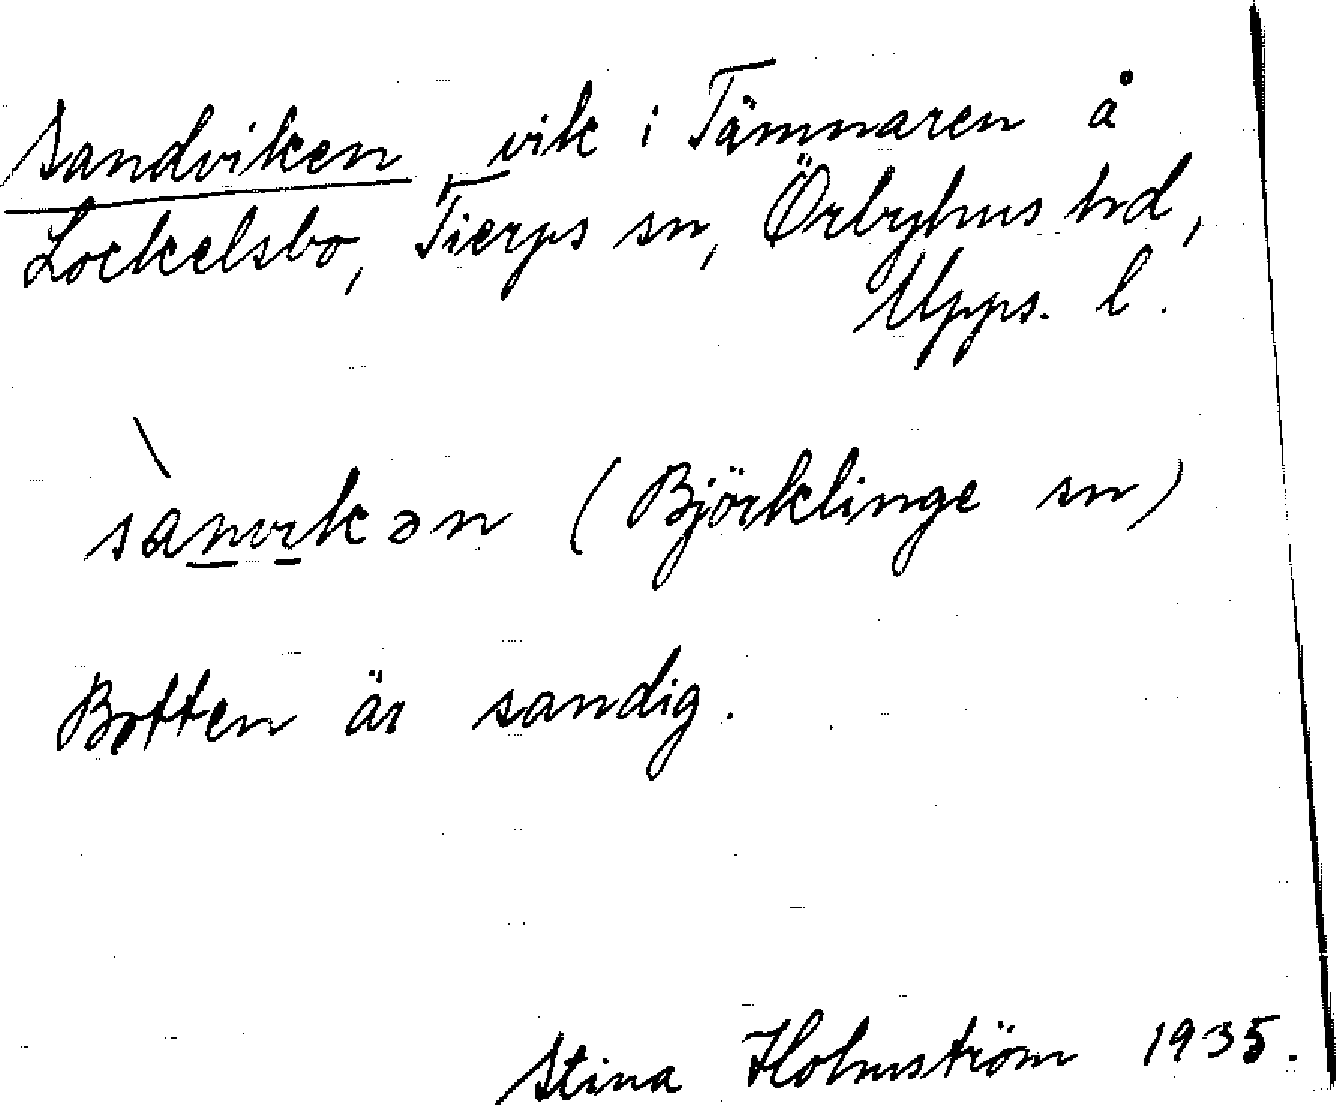 Sandviken vik i Tämnaren å
Lockelsbo, Tierps sn, Örbyhus hd,
Upps. l.
sànvikən (Björklinge sn)
Botten är sandig.
Stina Holmström 1935.